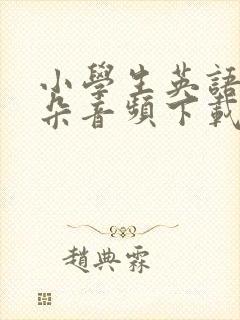 小學生英語
朵音頻下載
趙典霖